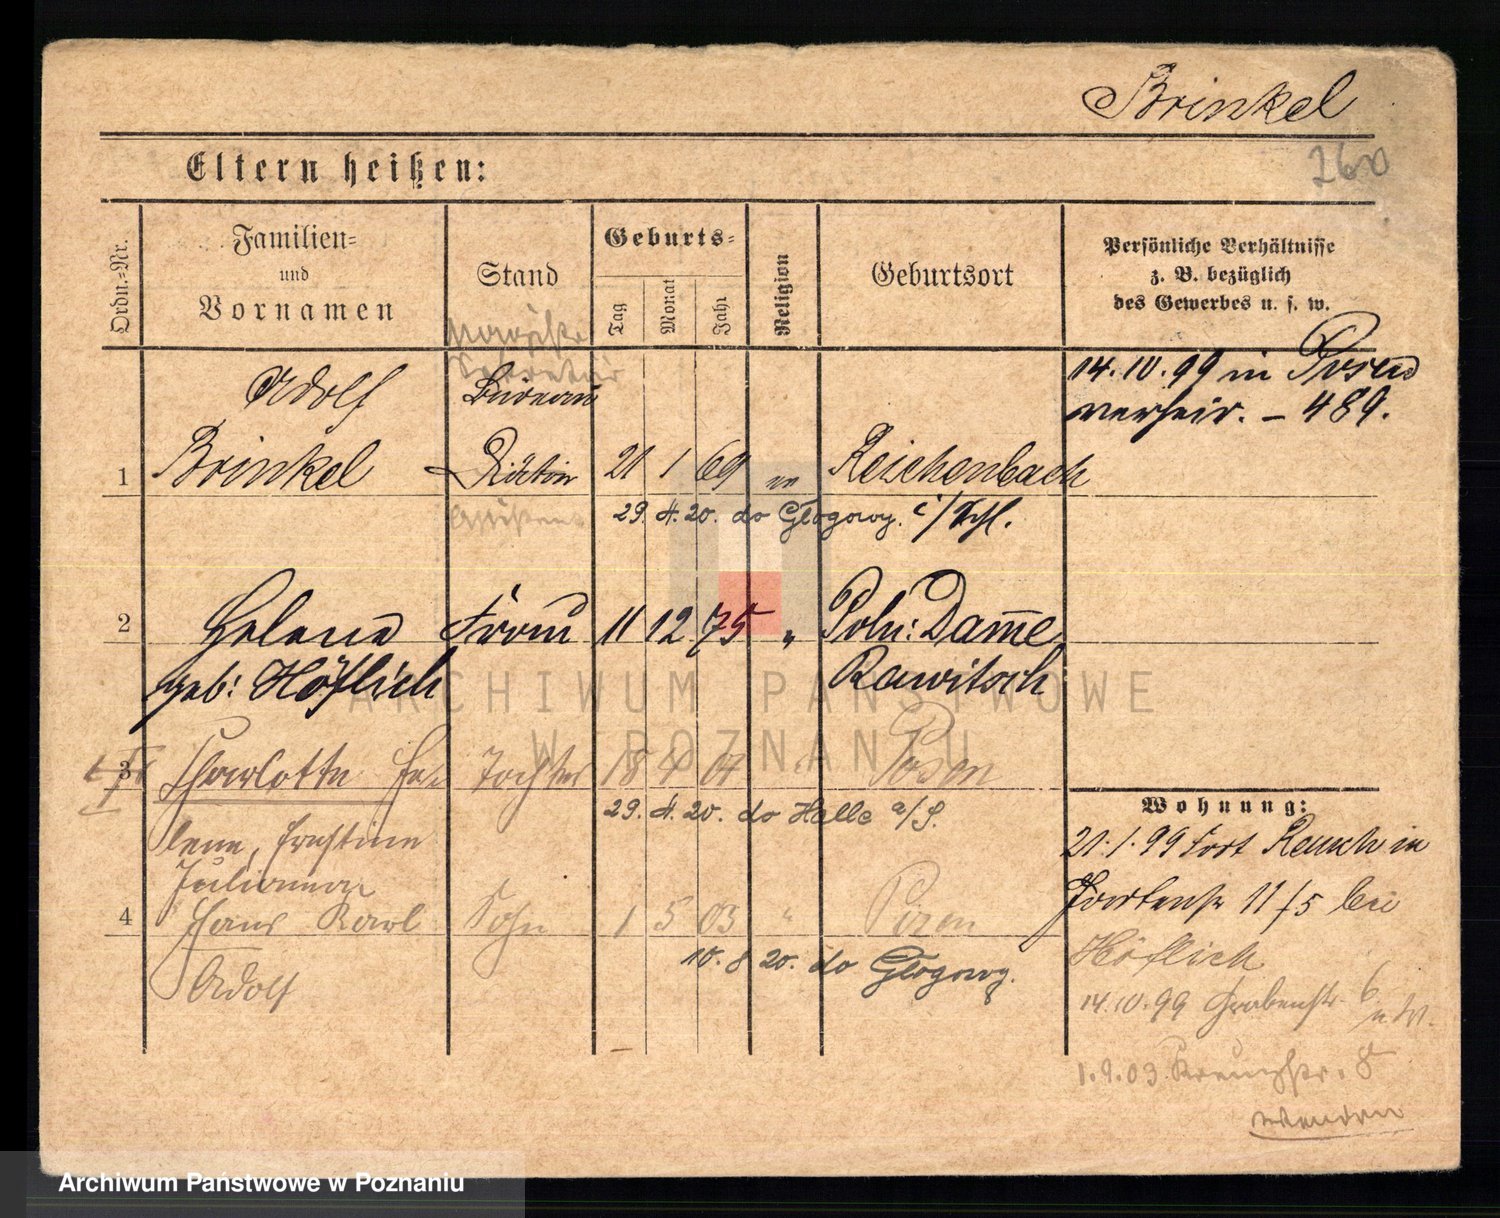 Brinkel
260
Eltern heißen:
Ordn.-Nr.
Familien-
und
Vornamen
Stand
Geburts-
Tag
Monat
Jahr
Religion
Geburtsort
Persönliche Verhältnisse
z. B. bezüglich
des Gewerbes u. s. w.
Sekretär
14.10.99 in Posen
verheir. – 489.
Adolf
Büreau
1 Brinkel Diätar 21 1 69 Reichenbach
29. 4. 20. do Głogowy. i/Schl.
2 Helene Frau 11 12 75 " Poln: Damme
geb: Höflich Rawitsch
3 Charlotte He- Tochter 18 4 01 " Posen
29. 4. 20. do Halle a/S.
lene, Ernstine
Julianna
4 Hans Karl Sohn 1 5 03 " Posen
Adolf
10. 8 20. do Głogowy.
Wohnung:
21.1.99 Fort Rauch in
11/5 bei
Höflich
14.10.99 Grabenstr. 6
1.9.03 Kreuzstr. 8
wenden
ARCHIWUM PAŃSTWOWE
W POZNANIU
Archiwum Państwowe w Poznaniu